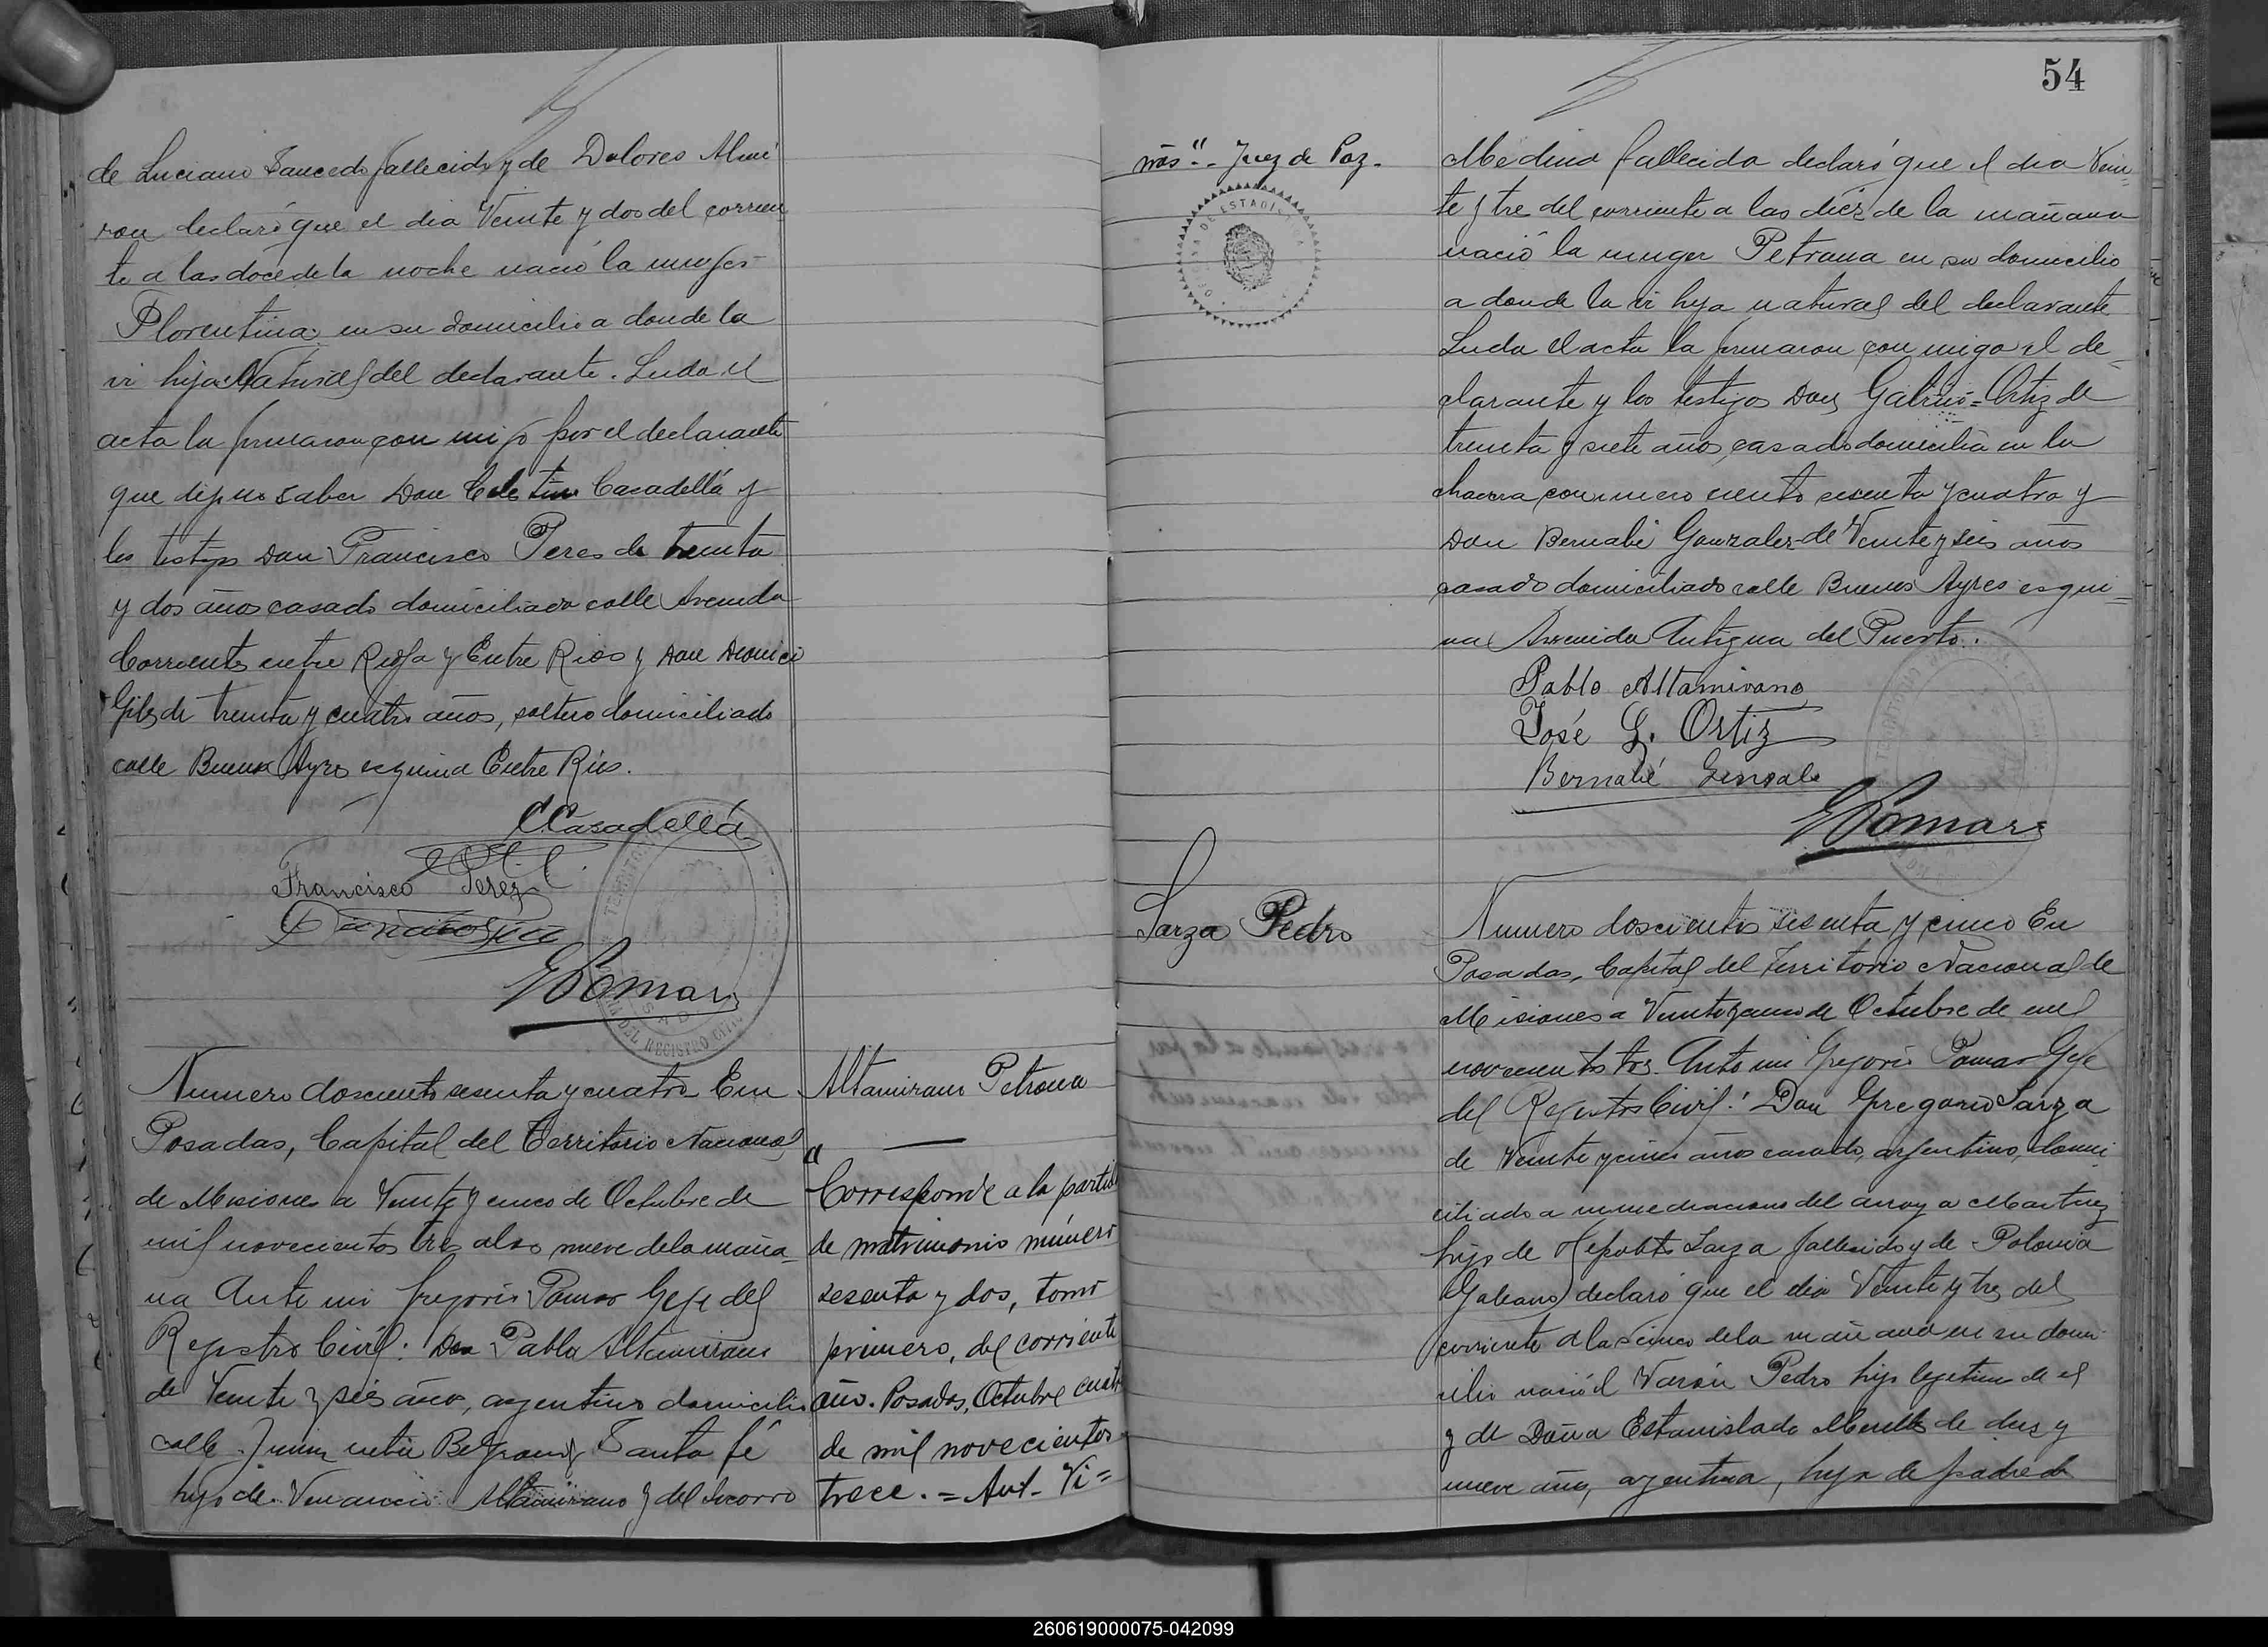 de Luciano Saucedo fallecido y de Dolores Almi
ron declaró que el dia Veinte y dos del corrien
te a las doce de la noche nació la muger
Florentina en su domicilio a donde la
vi hija Natural del declarante. Leida el
acta la firmaron con migo por el declarante
que dijo no saber Don Celestino Casadellá y
los testigos Don Francisco Peres de treinta
y dos años casado domiciliado calle Avenida
Corrientes entre Rioja y Entre Rios y Don
de treinta y cuatro años, soltero domiciliado
calle Buenos Ayres esquina Entre Rios.
CCasadellá
Francisco Perez
GPomar
Numero doscientos sesenta y cuatro En
Posadas, Capital del Territorio Nacional
de Misiones a Veinte y cinco de Octubre de
mil novecientos tres a las nueve de la maña
na Ante mi Gregorio Pomar Gefe del
Registro Civil: Don Pablo Altamirano
de Veinte y seis años, argentino domicilio
calle Junin entre Belgrano y Santa fé
hijo de Venancio Altamirano y del Socorro
Altamirano Petrona
"Corresponde a la partida
de matrimonio número
sesenta y dos, tomo
primero, del corriente
año. Posadas, Octubre cuatro
de mil novecientos
trece. = Ant. Vi=
54
ñas". Juez de Paz.
OFICINA DE ESTADISTICA
Medina fallecida declaró que el dia Vein
te y tre del corriente a las diéz de la mañana
nació la muger Petrona en su domicilio
a donde la vi hija natural del declarante
Leida el acta la firmaron con migo el de
clarante y los testigos Don Gabino Ortiz de
treinta y siete años, casado domicilia en la
chacra con numero ciento sesenta y cuatro y
Don Bernabé Gonzalez de Veinte y seis años
casado domiciliado calle Buenos Ayres esqui
na Avenida Antigua del Puerto.
Pablo Altamirano
José G. Ortiz
Bernabé Gonsale
GPomar
Sarza Pedro
Numero doscientos sesenta y cinco En
Posadas, Capital del Territorio Nacional de
Misiones a Veinte y cinco de Octubre de mil
novecientos tres. Ante mi Gregorio Pomar Gefe
del Registro Civil: Don Gregorio Sarza
de Veinte y cinco años casado, argentino, domi
ciliado a inmediaciones del arroyo Martires
hijo de Sarza fallecido y de Polonia
Galeano declaró que el dia Veinte y tres del
corriente a las cinco de la mañana en su domi
cilio nació el Varón Pedro hijo legitimo de el
y de Doña Estanislada de dies y
nueve años, argentina, hija de padre de
260619000075-042099